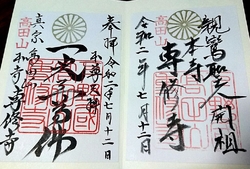 親鸞聖人開祖
高田山
本寺
専修寺
令和二年七月十二日
奉拝 令和二年七月十二日
高田山
一光三尊佛
真宗
本寺 専修寺